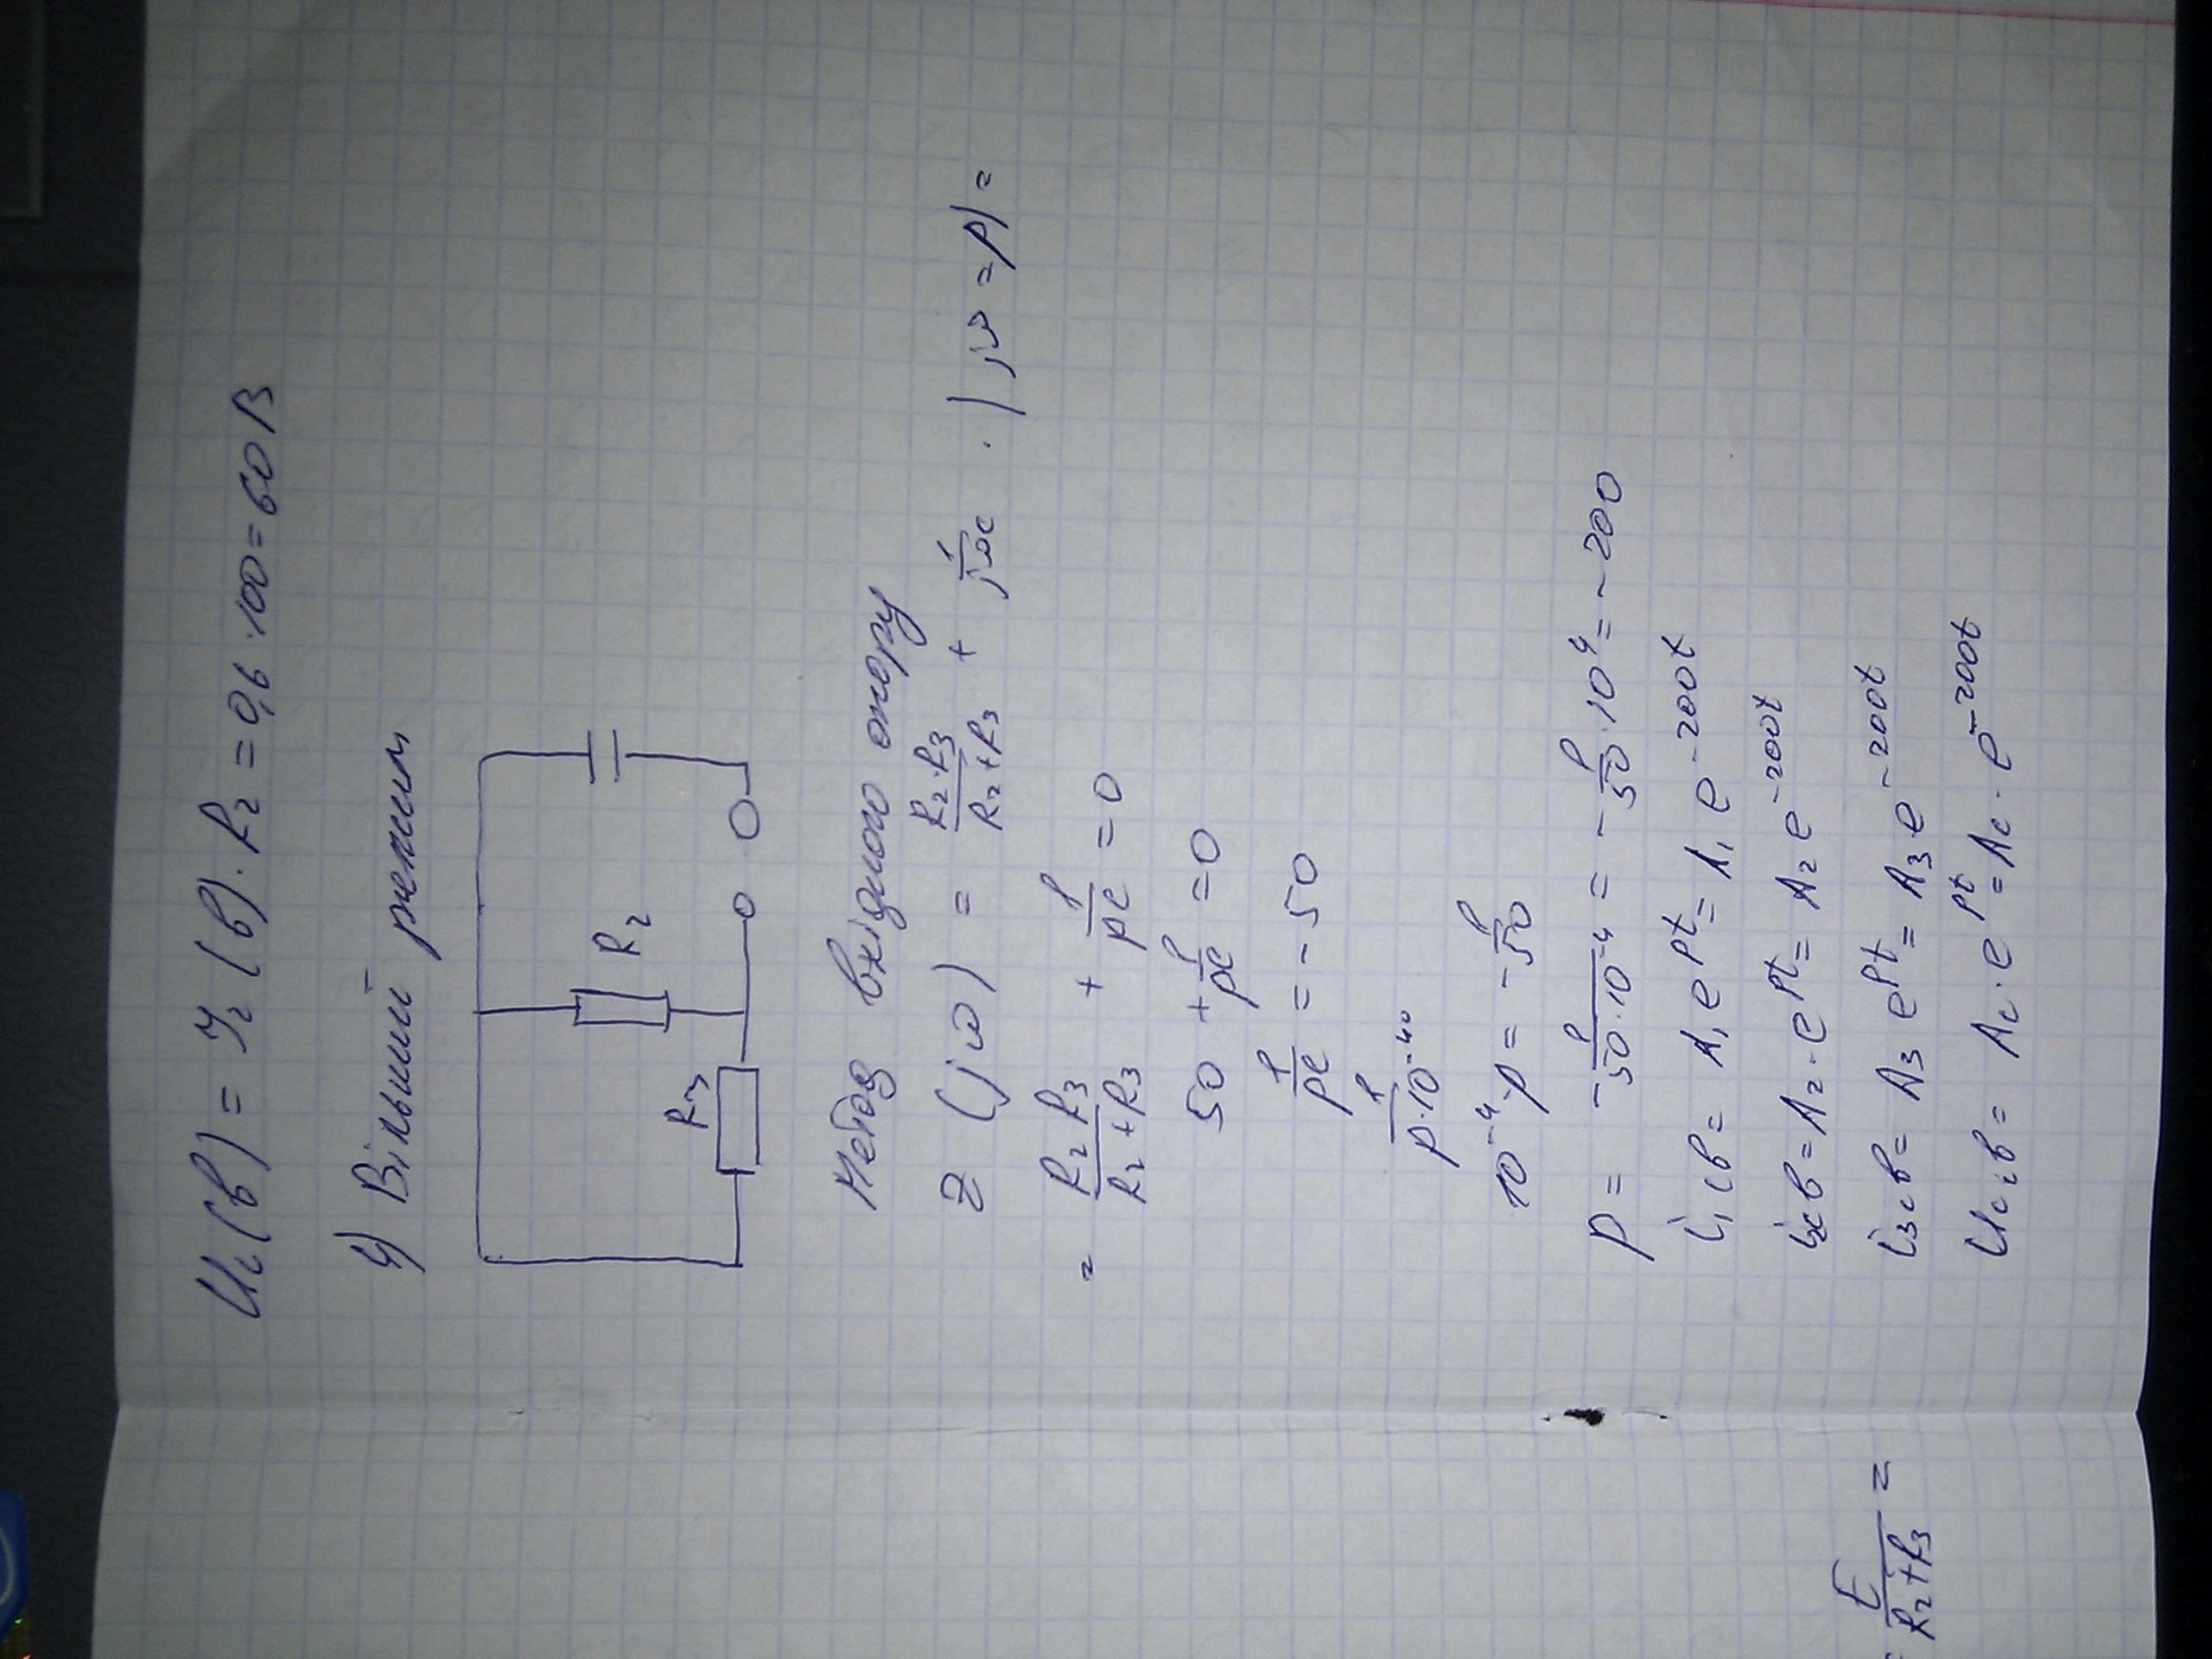 Uc(в) = I₂(в)·R₂ = 0,6·100 = 60В
4) Вільний режим
R₂
R₃
Метод вхідного опору
Z(jω) = R₂·R₃/(R₂+R₃) + 1/jωc · |jω=p| =
= R₂R₃/(R₂+R₃) + 1/pc = 0
50 + 1/pc = 0
1/pc = -50
10⁻⁴·p = -1/50
p = -1/(50·10⁻⁴) = -1/50·10⁴ = -200
i₁св = A₁e^pt = A₁e^-200t
i₂св = A₂·e^pt = A₂e^-200t
i₃св = A₃e^pt = A₃e^-200t
Uc св = Ac·e^pt = Ac·e^-200t
E/(R₂+R₃) =